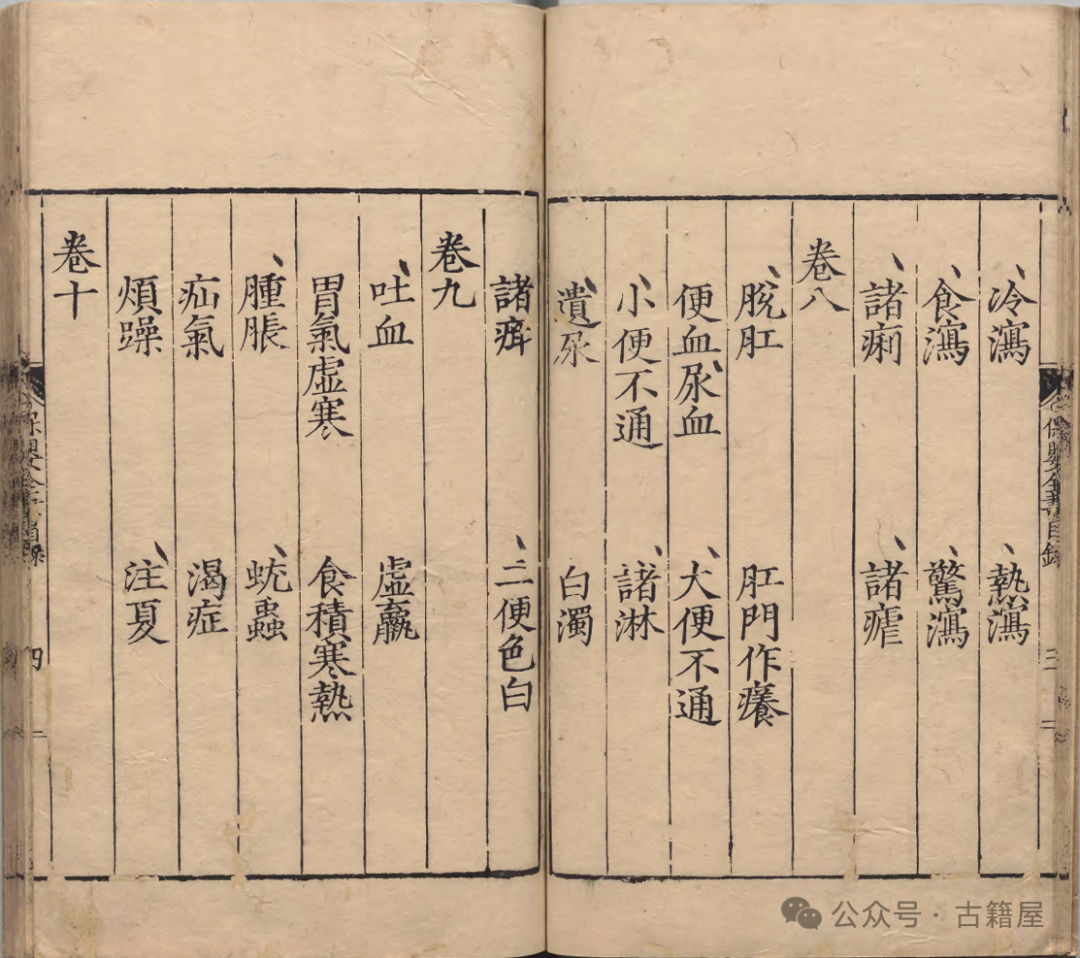 冷瀉 熱瀉
食瀉 驚瀉
諸痢 諸瘧
卷八
脫肛 肛門作癢
便血尿血 大便不通
小便不通 諸淋
遺尿 白濁
諸痺 二便色白
卷九
吐血 虛羸
胃氣虛寒 食積寒熱
腫脹 蚘蟲
疝氣 渴症
煩躁 注夏
卷十
保嬰全書目錄
三
四
公众号 · 古籍屋